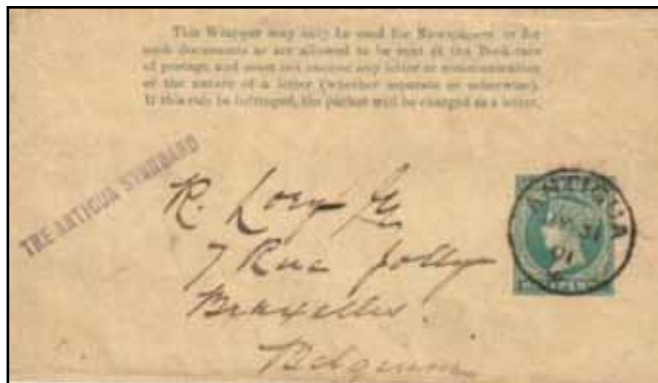 This Wrapper may only be used for Newspapers or for
such documents as are allowed to be sent at the Book-rate
of postage, and must not enclose any letter or communication
of the nature of a letter (whether separate or otherwise).
If this rule be infringed, the packet will be charged as a letter.
THE ANTIGUA STANDARD
R. Lory
7 Rue Jolly
Bruxelles.
Belgium
ANTIGUA
31
91